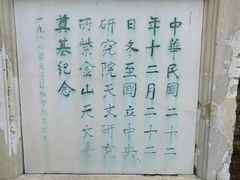 中華民國二十二
年十二月二十二
日冬至國立中央
研究院天文研究
所紫金山天文臺
奠基紀念